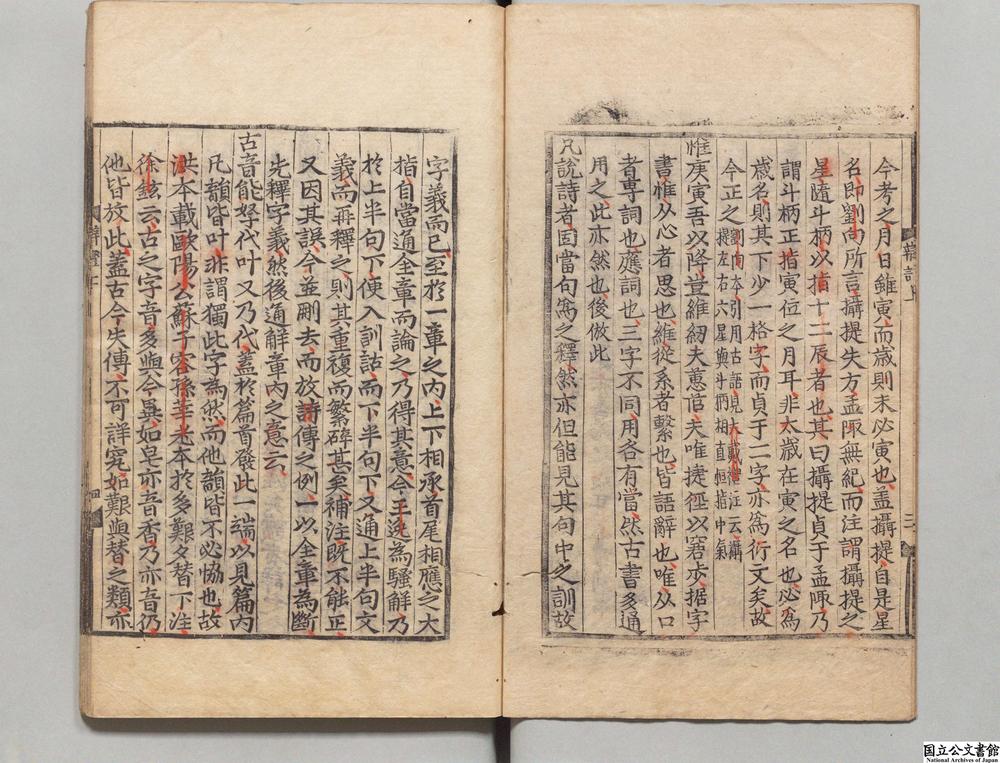 今考之月日雖寅而歳則未必寅也盖攝提自是星
名即劉向所言攝提失方孟陬無紀而注謂攝提之
星隨斗柄以指十二辰者也其曰攝提貞于孟陬乃
謂斗柄正指寅位之月耳非太歳在寅之名也必爲
歳名則其下少一格字而貞于二字亦爲衍文矣故
今正之劉向本引用古語見大戴禮注云攝
提左右六星與斗柄相直恒指中氣
惟庚寅吾以降豈維紉夫蕙茝夫唯捷徑以窘步据字
書惟从心者思也維從糸者繫也皆語辭也唯从口
者専詞也應詞也三字不同用各有當然古書多通
用之此亦然也後倣此
凡說詩者固當句爲之釋然亦但能見其句中之訓故
辯證上
三
字義而已至於一章之内上下相承首尾相應之大
指自當通全章而論之乃得其意今王逸為騷解乃
於上半句下便入訓詁而下半句下又通上半句文
義而再釋之則其重復而繁碎甚矣補注既不能正
又因其誤今並刪去而放詩傳之例一以全章為斷
先釋字義然後通解章内之意云
古音能孥代叶又乃代盖於篇首發此一端以見篇内
凡韻皆叶非謂獨此字為然而他韻皆不必恊也故
洪本載歐陽公蘇子容孫莘老本於多艱夕替下注
徐鉉云古之字音多與今異如皂亦音香乃亦音仍
他皆放此蓋古今失傳不可詳究如艱與替之類亦
辯證上
四
国立公文書館
National Archives of Japan